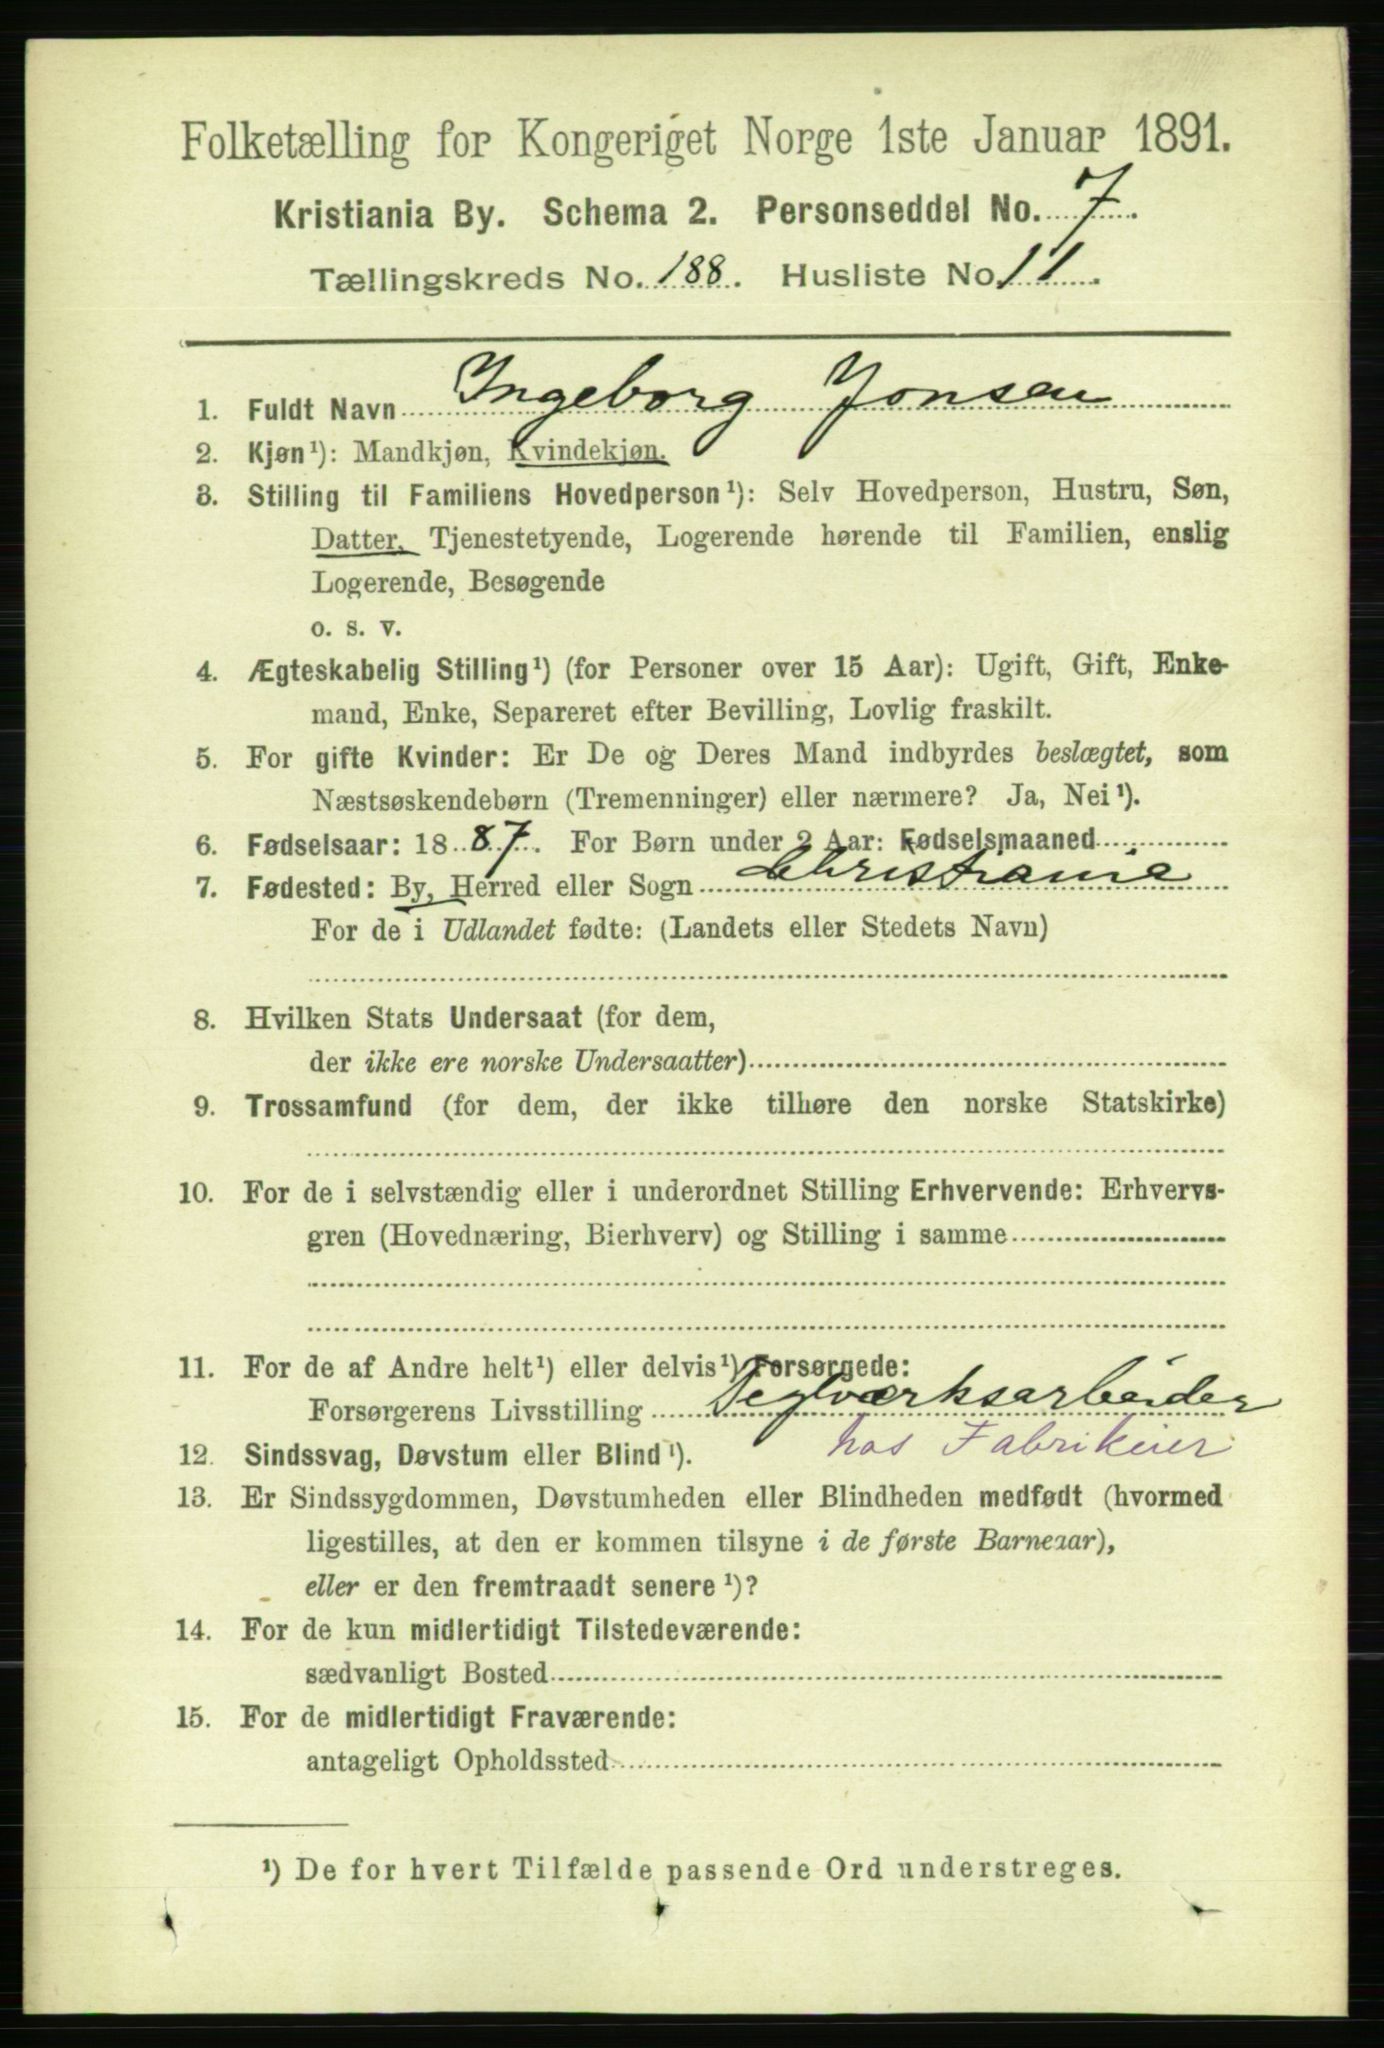 Folketælling for Kongeriget Norge 1ste Januar 1891.
Kristiania By. Schema 2. Personseddel No. 7.
Tællingskreds No. 188. Husliste No. 11.
1. Fuldt Navn Ingeborg Jonsen
2. Kjøn¹): Mandkjøn, Kvindekjøn.
3. Stilling til Familiens Hovedperson¹): Selv Hovedperson, Hustru, Søn,
Datter, Tjenestetyende, Logerende hørende til Familien, enslig
Logerende, Besøgende
o. s. v.
4. Ægteskabelig Stilling¹) (for Personer over 15 Aar): Ugift, Gift, Enke-
mand, Enke, Separeret efter Bevilling, Lovlig fraskilt.
5. For gifte Kvinder: Er De og Deres Mand indbyrdes beslægtet, som
Næstsøskendebørn (Tremenninger) eller nærmere? Ja, Nei¹).
6. Fødselsaar: 1887. For Børn under 2 Aar: Fødselsmaaned
7. Fødested: By, Herred eller Sogn Christiania
For de i Udlandet fødte: (Landets eller Stedets Navn)
8. Hvilken Stats Undersaat (for dem,
der ikke ere norske Undersaatter)
9. Trossamfund (for dem, der ikke tilhøre den norske Statskirke)
10. For de i selvstændig eller i underordnet Stilling Erhvervende: Erhvervs-
gren (Hovednæring, Bierhverv) og Stilling i samme
11. For de af Andre helt¹) eller delvis¹) Forsørgede:
Forsørgerens Livsstilling Teglværksarbeider
hos Fabrikeier
12. Sindssvag, Døvstum eller Blind¹).
13. Er Sindssygdommen, Døvstumheden eller Blindheden medfødt (hvormed
ligestilles, at den er kommen tilsyne i de første Barneaar),
eller er den fremtraadt senere¹)?
14. For de kun midlertidigt Tilstedeværende:
sædvanligt Bosted
15. For de midlertidigt Fraværende:
antageligt Opholdssted
¹) De for hvert Tilfælde passende Ord understreges.